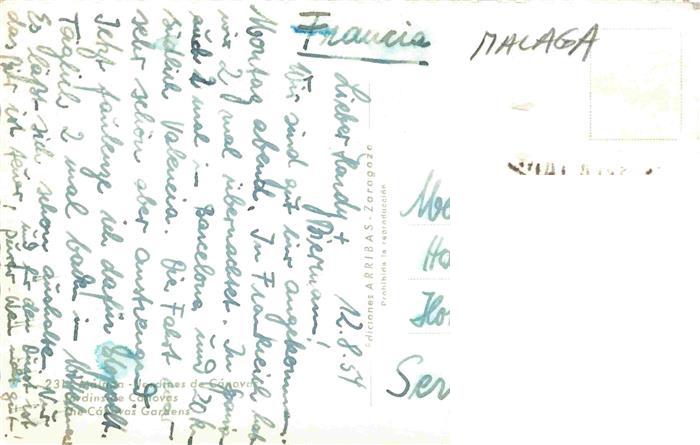 Francia
MALAGA
12.8.54
Lieber Hardy +
Biermann!
Wir sind gut hier angekommen.
Montag abend. In Frankreich hat
wir 2 mal übernachtet. In Spanien
auch 2 mal in Barcelona und 20 km
südlich Valencia. Die Fahrt war
sehr schön aber anstrengend
Jetzt faulenze ich dafür
Täglich 2 mal baden im
Es läßt sich schon aushalten. Nur
das Bier ist teuer, und für den Durst ist
der Wein gut!
Ediciones ARRIBAS - Zaragoza
Prohibida la reproducción
Ho
Ser
231 Málaga - Jardines de Cánovas
Jardins de Cánovas
The Cánovas Gardens